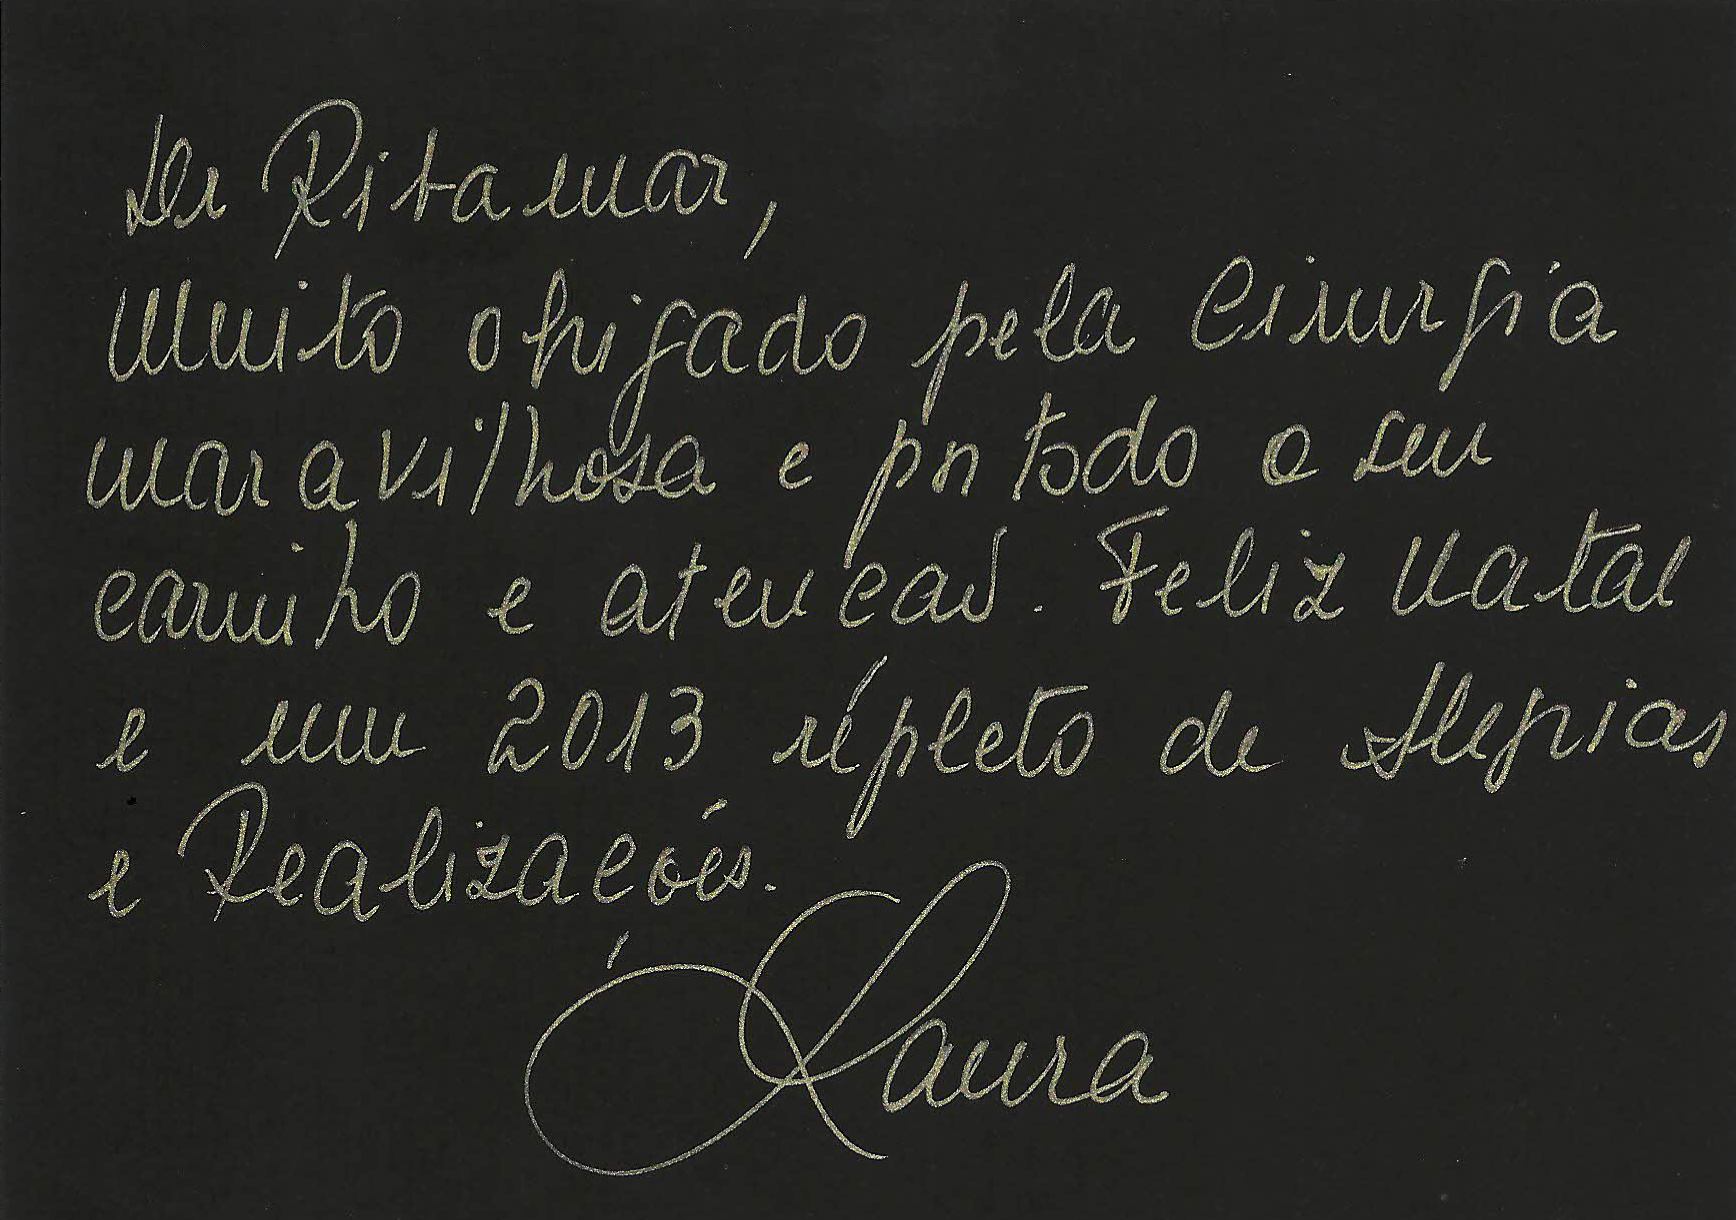 Dr Ritamar,
Muito obrigado pela Cirurgia
maravilhosa e por todo o seu
carinho e atencaō. Feliz Natal
e um 2013 répleto de Alegrias
e Realizacóes.
Laura